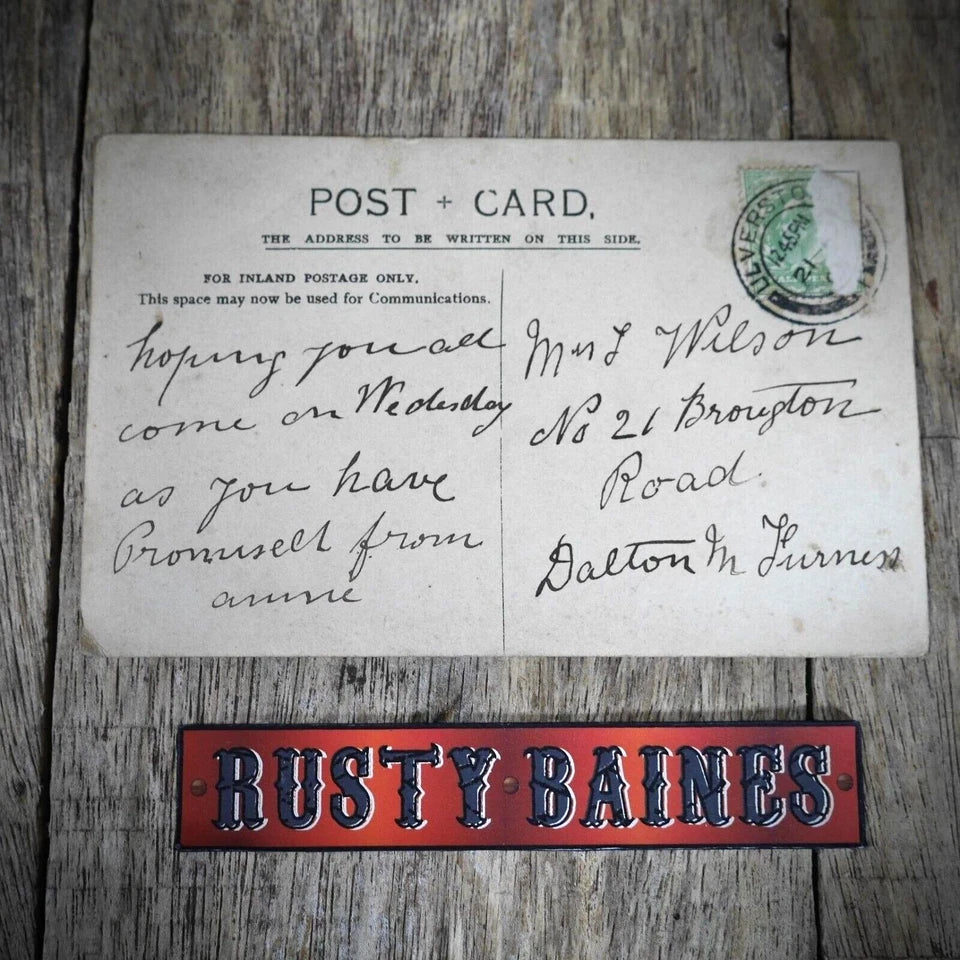 POST + CARD.
THE ADDRESS TO BE WRITTEN ON THIS SIDE.
FOR INLAND POSTAGE ONLY.
This space may now be used for Communications.
hoping you all
come on Wedesday
as you have
Promiselt from
annie
Mrs J Wilson
No 21 Brougton
Road.
Dalton In Furness
ULVERSTO
12.45PM
21
RUSTY BAINES